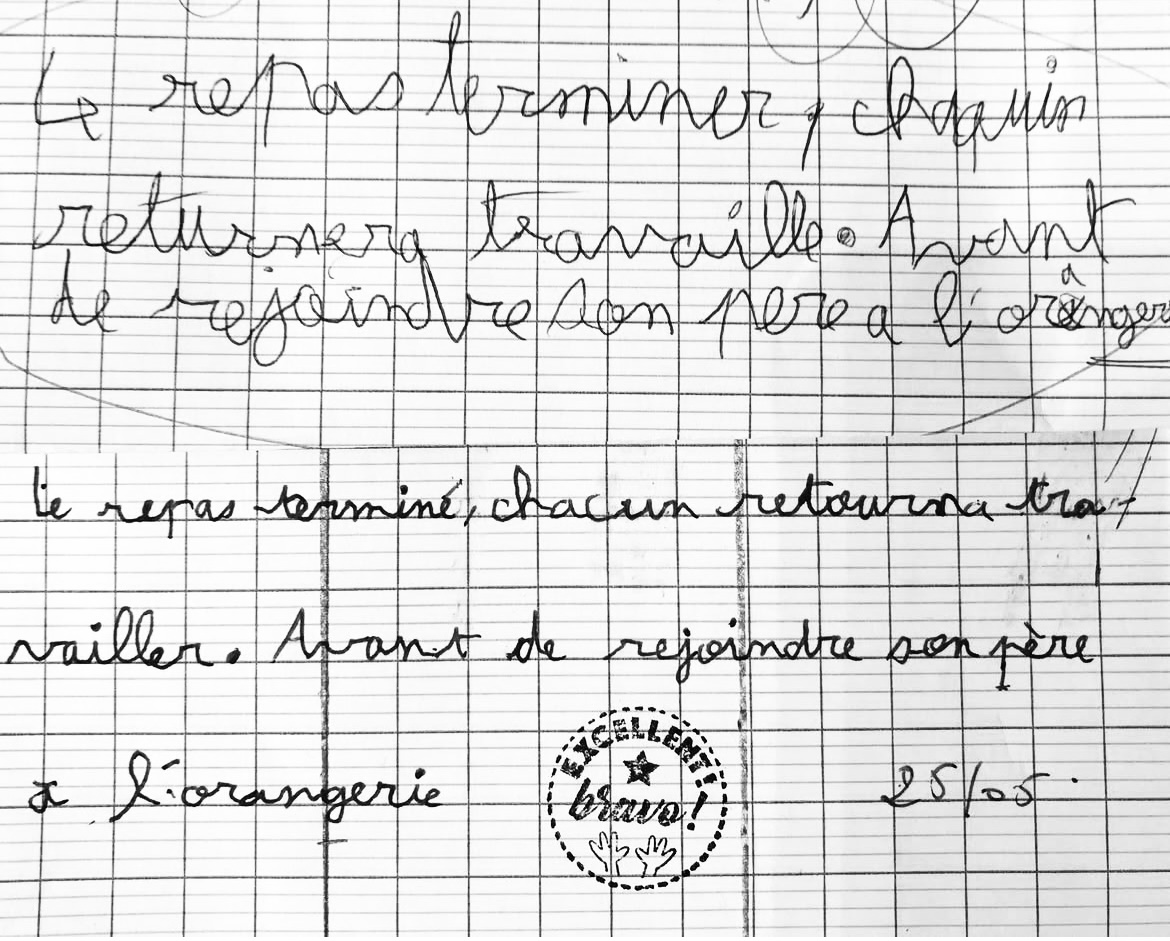 ↳ repas terminer, chaquin
returnera travaille. Avant
de rejoindre son pere a l'oranger
le repas terminé, chacun retourna tra-
vailler. Avant de rejoindre son père
à l'orangerie
EXCELLENT!
bravo!
25/05